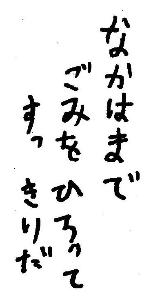 なかはまで
ごみを ひろって
すっきりだ